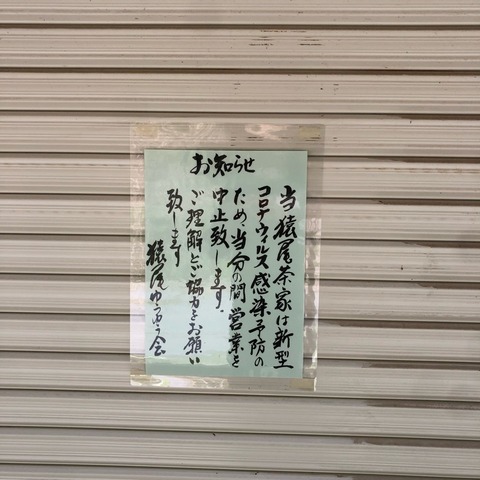 お知らせ
当猿尾茶家は新型
コロナウィルス感染予防の
ため、当分の間営業を
中止致します。
ご理解とご協力をお願い
致します
猿尾ゆうゆう会